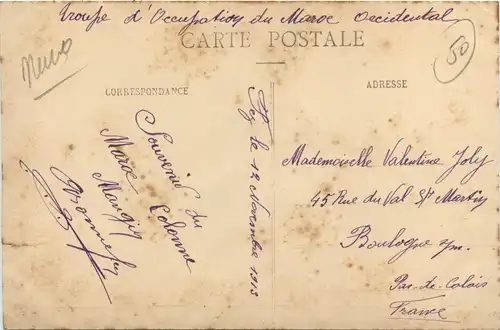 Troupe d'Occupation du Maroc Occidental
CARTE POSTALE
50
CORRESPONDANCE
ADRESSE
Souvenir du
Maroc
Colonne
Mangin
le 12 Novembre 1913
Mademoiselle Valentine Joly
45 Rue du Val St Martin
Boulogne s/m.
Pas-de-Calais
France